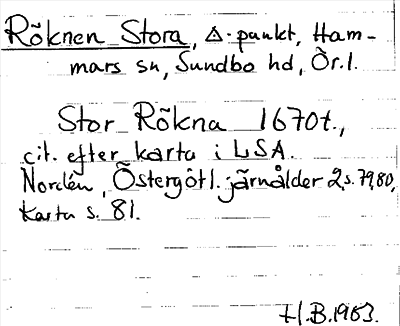 Röknen Stora, △-punkt, Ham-
mars sn, Sundbo hd, Ör.l.
Stor Rökna 1670t.,
cit. efter karta i LSA.
Nordén, Östergötl. järnålder 2, s. 79, 80,
karta s. 81.
H.B. 1963.